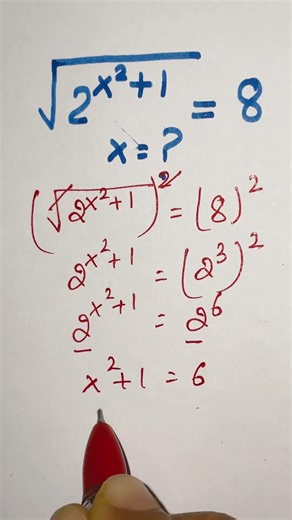 √(2^(x²+1)) = 8
x = ?
(√(2^(x²+1)))² = (8)²
2^(x²+1) = (2³)²
2^(x²+1) = 2⁶
x²+1 = 6